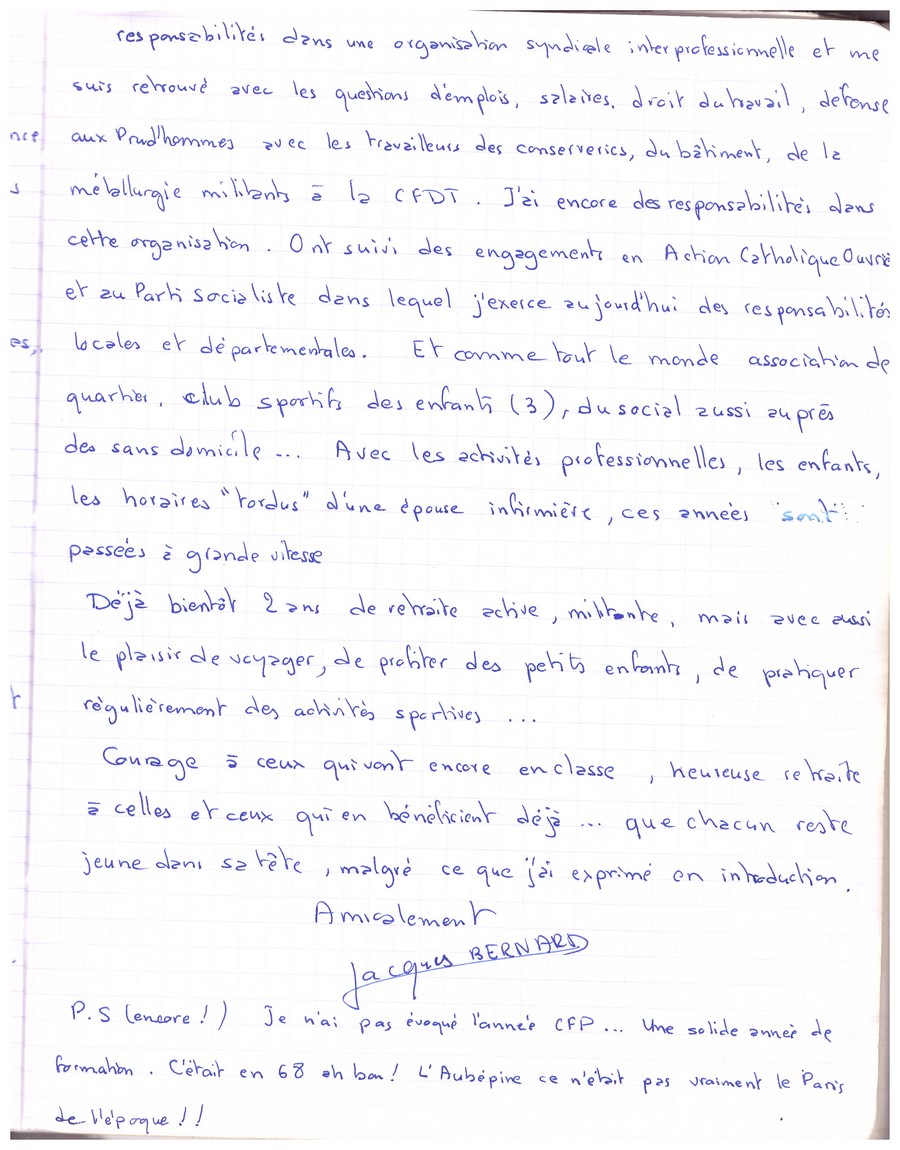 responsabilités dans une organisation syndicale interprofessionnelle et me
suis retrouvé avec les questions d'emplois, salaires, droit du travail, défense
nce aux Prud'hommes avec les travailleurs des conserveries, du bâtiment, de la
s métallurgie militants à la CFDT. J'ai encore des responsabilités dans
cette organisation. Ont suivi des engagements en Action Catholique Ouvrière
et au Parti Socialiste dans lequel j'exerce aujourd'hui des responsabilités
es, locales et départementales. Et comme tout le monde association de
quartier, club sportifs des enfants (3), du social aussi auprès
des sans domicile ... Avec les activités professionnelles, les enfants,
les horaires "tordus" d'une épouse infirmière, ces années sont
passées à grande vitesse
Déjà bientôt 2 ans de retraite active, militante, mais avec aussi
le plaisir de voyager, de profiter des petits enfants, de pratiquer
régulièrement des activités sportives ...
Courage à ceux qui vont encore en classe, heureuse retraite
à celles et ceux qui en bénéficient déjà ... que chacun reste
jeune dans sa tête, malgré ce que j'ai exprimé en introduction.
Amicalement
Jacques BERNARD
P.S (encore !) Je n'ai pas évoqué l'année CFP ... Une solide année de
formation. C'était en 68 ah bon ! L'Aubépine ce n'était pas vraiment le Paris
de l'époque !!